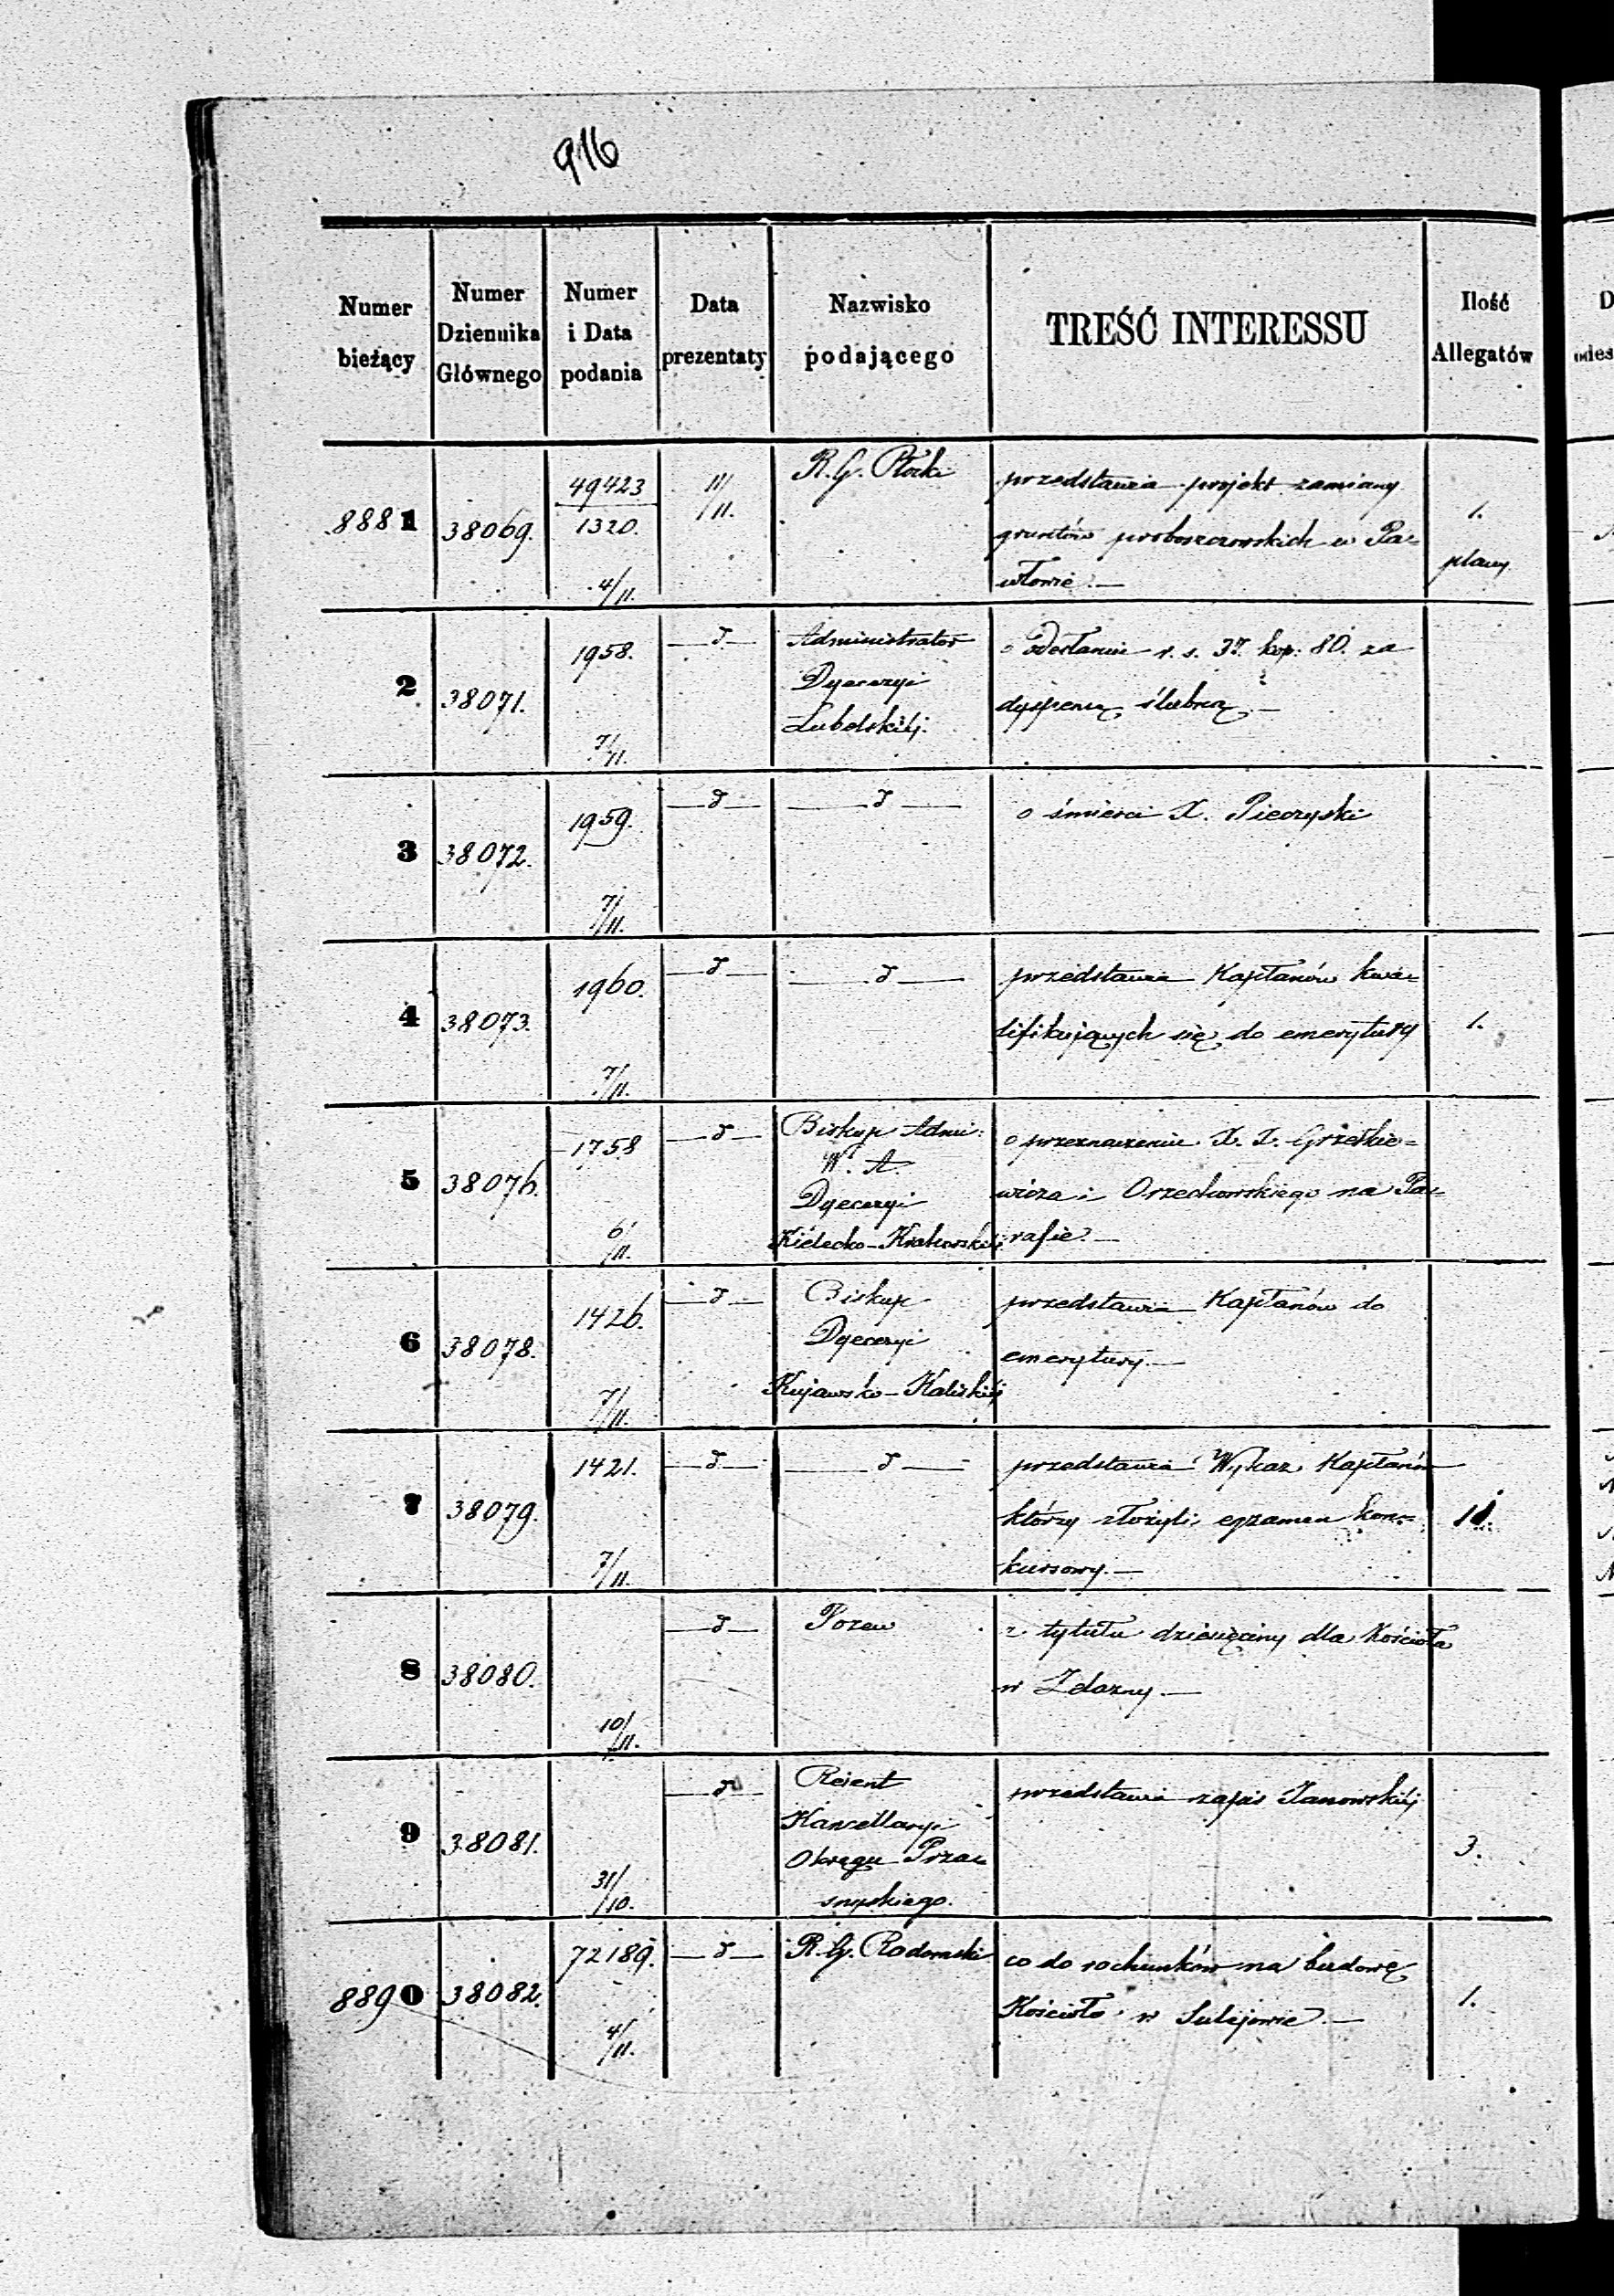 916
Numer bieżący | Numer Dziennika Głównego | Numer i Data podania | Data prezentaty | Nazwisko podającego | TREŚĆ INTERESSU | Ilość Allegatów
8881 | 38069. | 49423 / 1320. 4/11. | 11/11. | R. G. Płocki | przedstawia projekt zamiany
gruntów proboszczowskich w Pa=
włowie.— | 1. plany
2 | 38071. | 1958. 7/11. | —d— | Administrator
Dyecezyi
Lubelskiéj. | o odesłanie r. s. 37. kop: 80. za
dyspensę ślubną.—
3 | 38072. | 1959. 7/11. | —d— | —d— | o śmierci X. Pieczyski
4 | 38073. | 1960. 7/11. | —d— | —d— | przedstawia Kapłanów kwa=
lifikujących się do emerytury | 1.
5 | 38076. | 1758 6/11. | —d— | Biskup Admi:
W. A.
Dyecezyi
Kielecko-Krakowskiéj | o przeznaczeniu X. X. Grzełkie=
wicza i Orzechowskiego na Pa=
rafie.—
6 | 38078. | 1426. 7/11. | —d— | Biskup
Dyecezyi
Kujawsko-Kaliskiéj | przedstawia Kapłanów do
emerytury.—
7 | 38079. | 1421. 7/11. | —d— | —d— | przedstawia Wykaz Kapłanów
którzy złożyli egzamen kon=
kursowy.— | 11.
8 | 38080. | 10/11. | —d— | Pozew | z tytułu dziesięciny dla Kościoła
w Zdazny.—
9 | 38081. | 31/10. | —d— | Rejent
Kancellaryi
Okręgu Prza=
snyskiego. | przedstawia zapis Janowskiéj | 3.
8890 | 38082. | 72189. 4/11. | —d— | R. G. Radomski | co do rachunków na budowę
Kościoła w Sulejowie.— | 1.